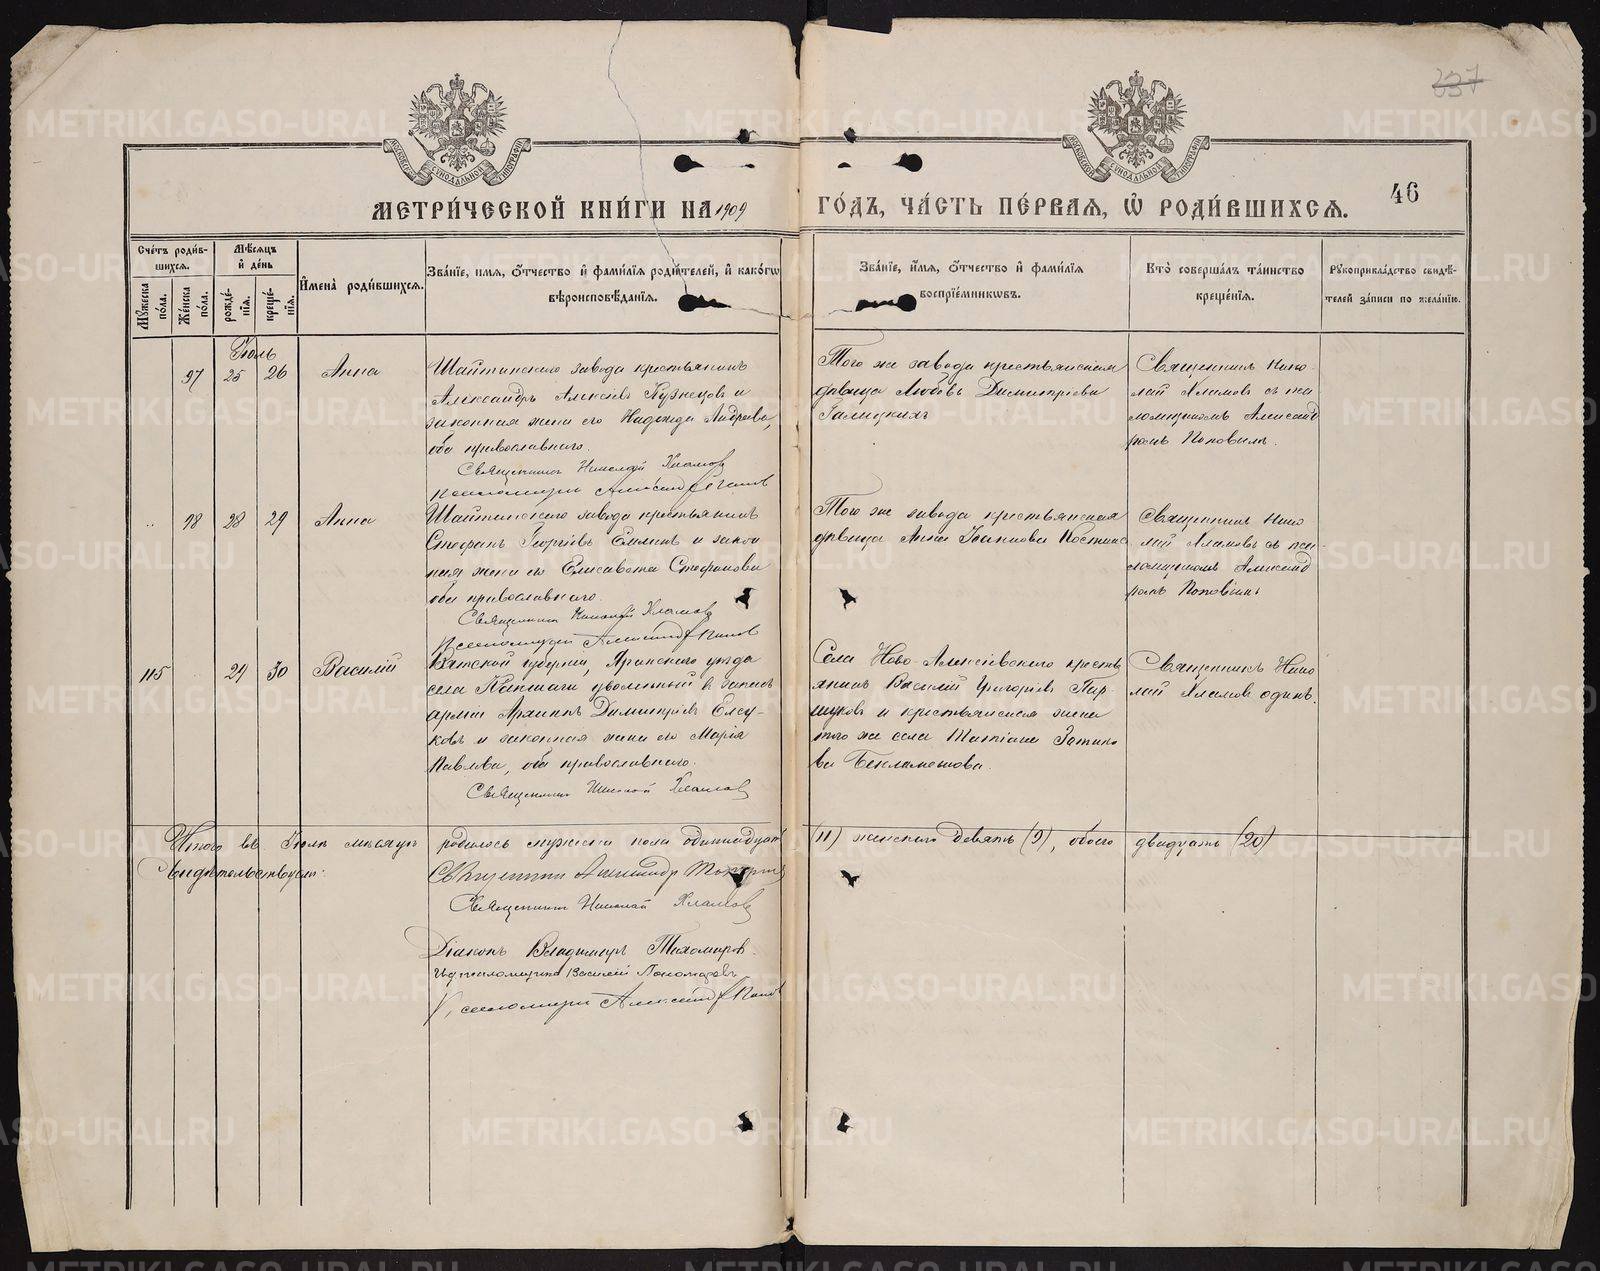 237
МОСКОВСКОЙ СУНОДАЛЬНОЙ ТИПОГРАФІИ
МОСКОВСКОЙ СУНОДАЛЬНОЙ ТИПОГРАФІИ
МЕТРИ́ЧЕСКОЙ КНИ́ГИ НА 1909 ГО́ДЪ, ЧА́СТЬ ПЕ́РВАЯ, Ѡ҆ РОДИ́ВШИХСЯ.
46
Сче́тъ роди́в-
шихся.
Мѣ́сяцъ
и҆ де́нь
Мꙋ́жеска
по́ла.
Же́нска
по́ла.
рожде́-
нїѧ.
креще́-
нїѧ.
И҆мена̀ роди́вшихся.
Зва́нїе, и́мѧ, ѻ҆́тчество и҆ фами́лїѧ роди́телей, и҆ како́гѡ
вѣроисповѣ́данїѧ.
Зва́нїе, и҆́мѧ, ѻ҆́тчество и҆ фами́лїѧ
воспрїе́мникѡвъ.
Кто̀ соверша́лъ та́инство
креще́нїѧ.
Рꙋкоприкла́дство свидѣ́-
телей за́писи по жела́нїю.
Іюль
97 25 26 Анна
Шайтинскаго завода крестьянинъ
Александръ Алексѣевъ Кузнецовъ и
законная жена его Надежда Андреева,
оба православнаго.
Священникъ Николай Хламов
псаломщикъ Александръ Попов
Того же завода крестьянская
дѣвица Любовь Димитріева
Галицкихъ
Священникъ Нико
лай Хламовъ съ пса
ломщикомъ Александ
ромъ Поповымъ.
98 28 29 Анна
Шайтинскаго завода крестьянинъ
Стефанъ Георгіевъ и закон
ная жена его Елисавета Стефанова
оба православнаго.
Священникъ Николай Хламов
Псаломщикъ Александръ Попов
Того же завода крестьянская
дѣвица Анна Іоаннова
Священникъ Нико
лай Хламовъ съ пса-
ломщикомъ Александ
ромъ Поповымъ
115 29 30 Василій
Вятской губерніи, Яранскаго уѣзда
села Кокшаги уволенный въ запасъ
арміи Архипъ Димитріевъ Елсу-
ковъ и законная жена его Марія
Павлова, оба православнаго.
Священникъ Николай Хламов
Села Ново-Алексѣевскаго кресть
янинъ Василій Григорьевъ Пар-
шуковъ и крестьянская жена
того же села Татіана
ва
Священникъ Нико
лай Хламовъ одинъ.
Итого въ Іюлѣ мѣсяцѣ родилось мужска пола одиннадцать (11) женскаго девять (9), обоего двадцать (20)
Свидѣтельствуемъ:
Священникъ Александр
Священникъ Николай Хламов
Діаконъ Владимиръ Тихомиров
псаломщикъ Василій Пономаревъ
псаломщикъ Александръ Попов
METRIKI.GASO-URAL.RU